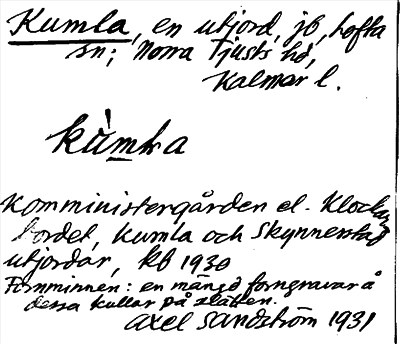 Kumla, en utjord, jb, Lofta
sn; Norra Tjusts hd,
Kalmar l.
kùmla
Komministergården el. Klockar
bordet, Kumla och Skynnerstad
utjordar, kb 1930
Fornminnen: en mängd forngravar å
dessa kullar på slätten.
Axel Sandström 1931